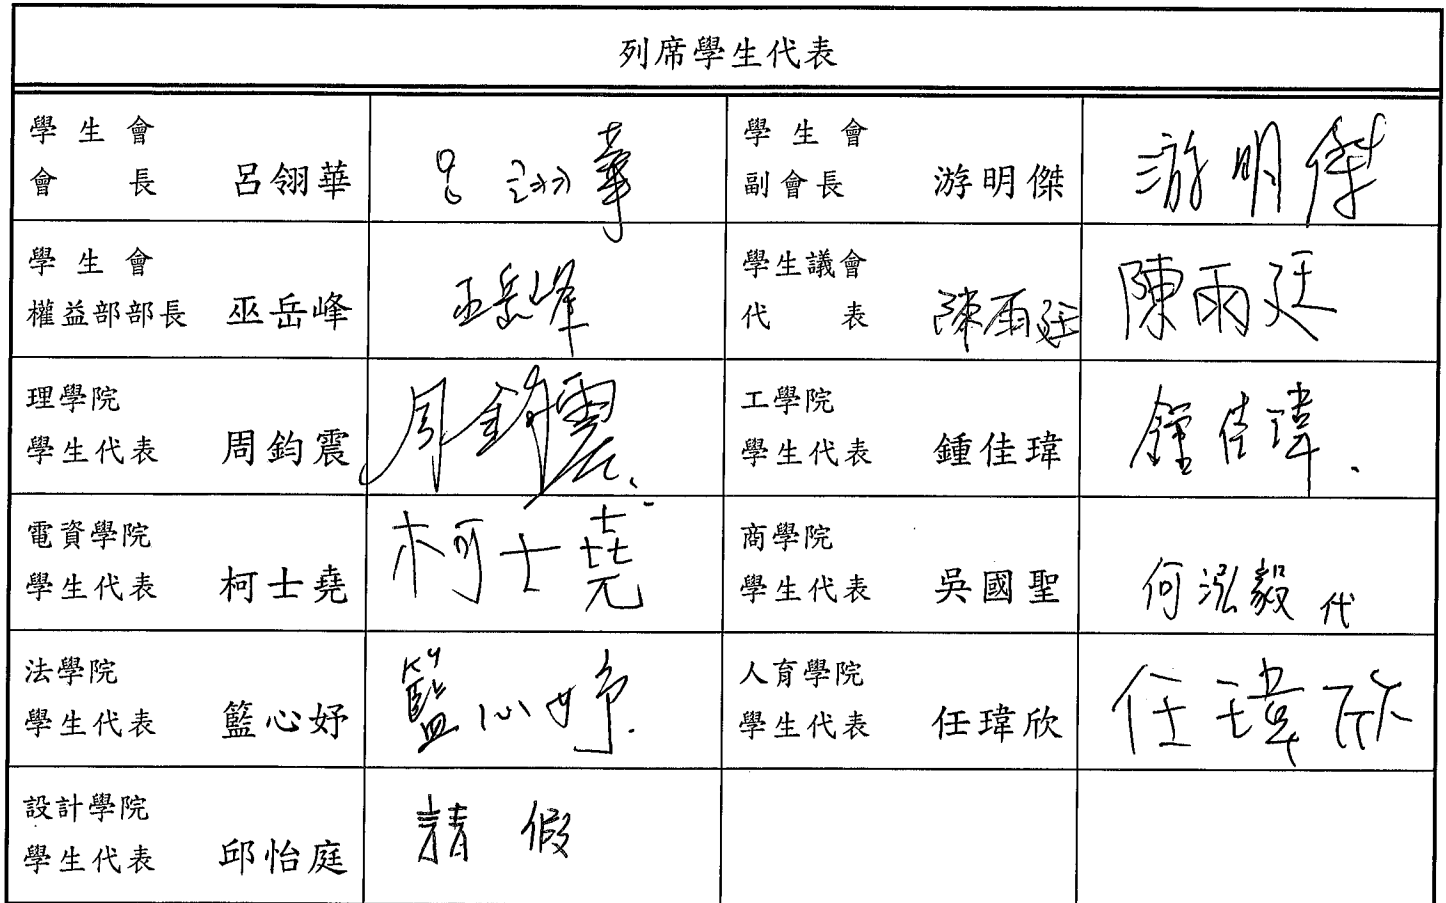 列席學生代表
學生會
會長 呂翎華 呂翎華
學生會
副會長 游明傑 游明傑
學生會
權益部部長 巫岳峰 巫岳峰
學生議會
代表 陳雨廷 陳雨廷
理學院
學生代表 周鈞震 周鈞震
工學院
學生代表 鍾佳瑋 鍾佳瑋
電資學院
學生代表 柯士堯 柯士堯
商學院
學生代表 吳國聖 何泓毅 代
法學院
學生代表 籃心妤 籃心妤
人育學院
學生代表 任瑋欣 任瑋欣
設計學院
學生代表 邱怡庭 請假